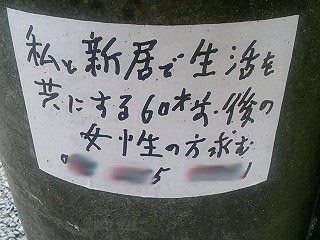 私と新居で生活を
共にする60才前・後の
女性の方求む